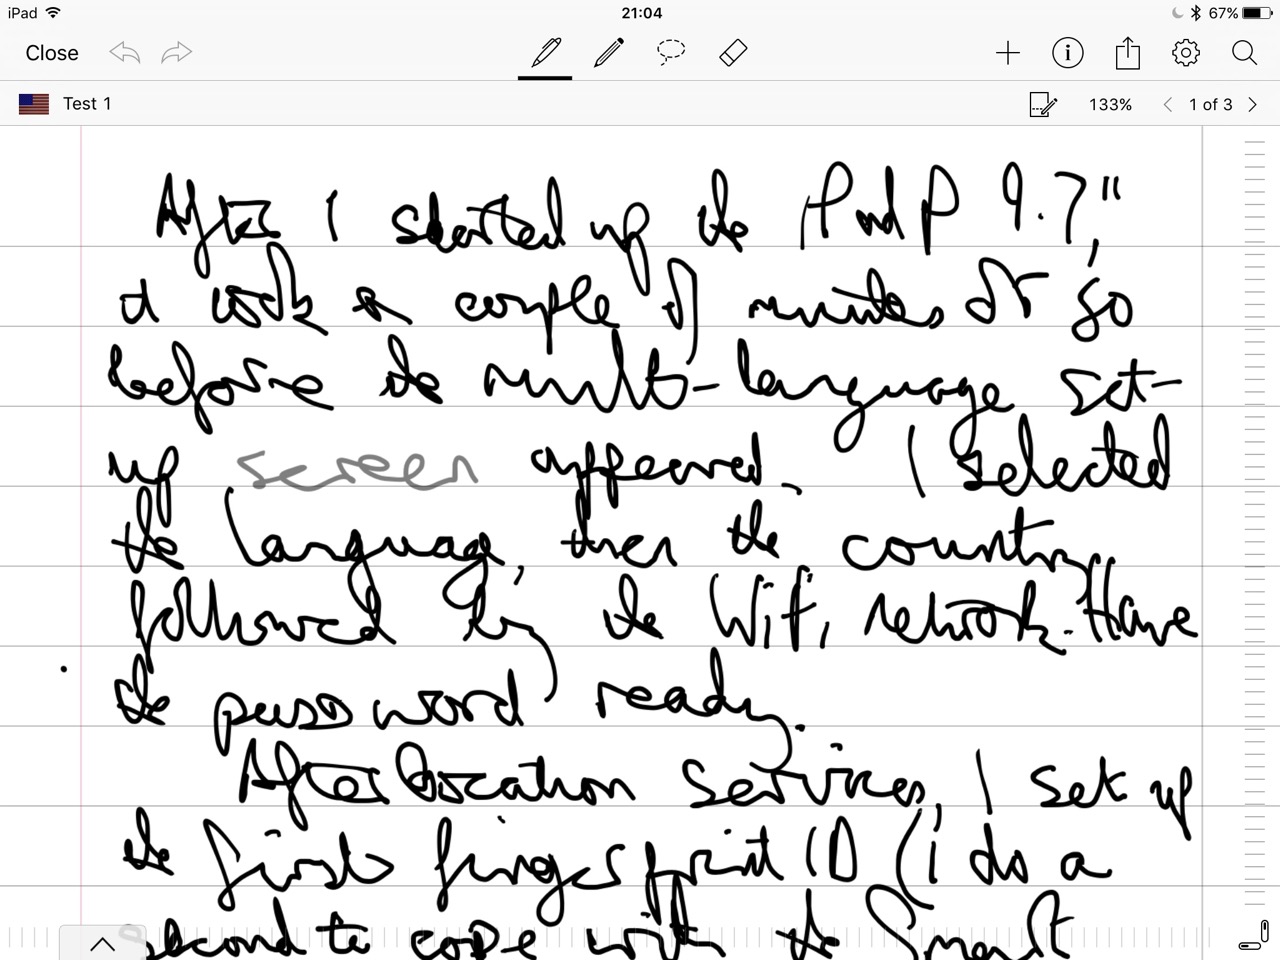 iPad 21:04 67%
Close
Test 1 133% 1 of 3
After I started up the iPad P 9.7",
it took a couple of minutes or so
before the multi-language set-
up screen appeared. I selected
the language, then the country
followed by the Wifi network. Have
the password ready.
After location services, I set up
the first fingerprint ID (I do a
second to cope with the Smart